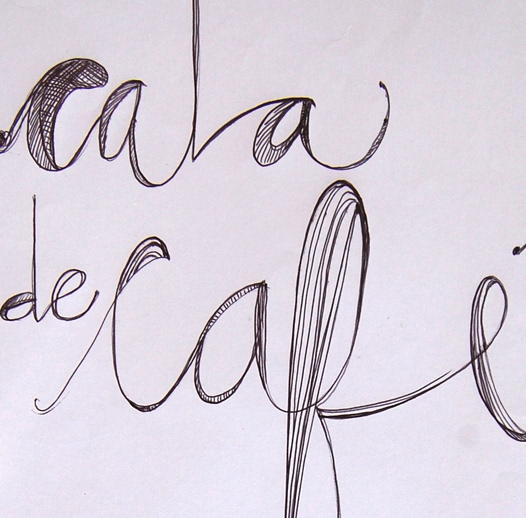 cala
de café